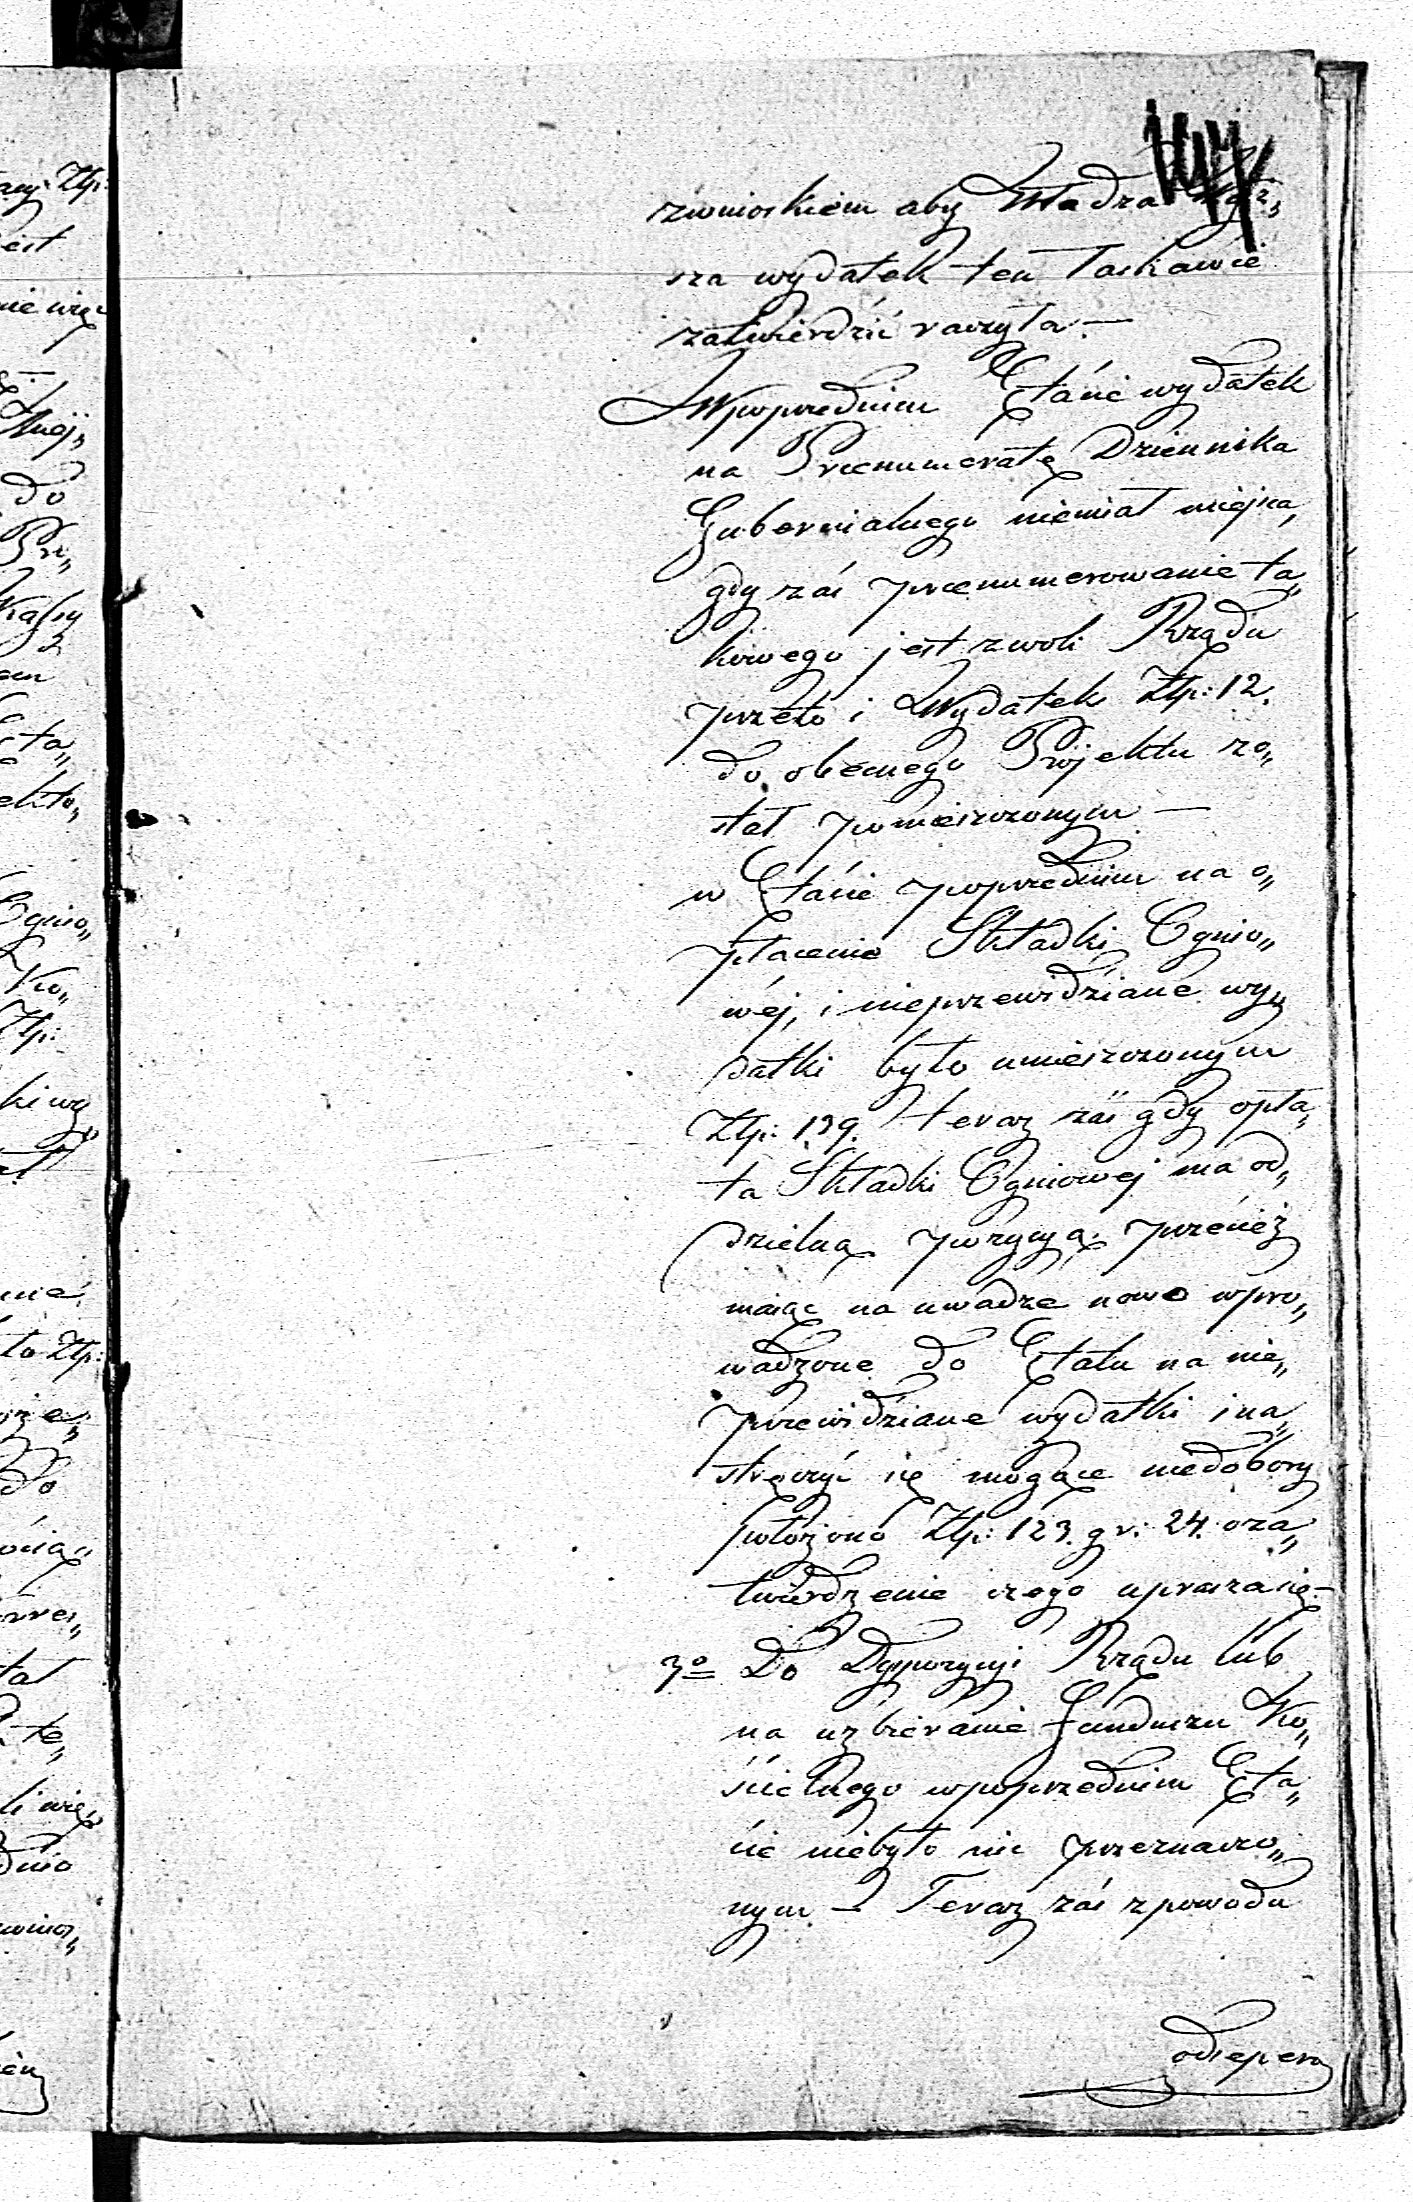 zwnioskiem aby Władza Wyż„
sza wydatek ten łaskawie
zatwierdzić raczyła. —
Wpoprzednim Etacie wydatek
na Prenumeratę Dziennika
Gubernialnego niemiał miejsca,
gdy zaś prenumerowanie ta„
kowego jest zwoli Rządu
przeto i Wydatek Złp: 12.
do obecnego Projektu zo„
stał pomieszczonym —
w Etacie poprzednim na o„
płacenie Składki Ognio„
wéj, i nieprzewidziane wy„
datki było umieszczonym
Złp: 139. teraz zaś gdy opła„
ta Składki Ogniowej ma od„
dzielną pozycyą; przeciéż
maiąc na uwadze nowo wpro„
wadzone do Etatu na nie„
przewidziane wydatki i na„
stręczyć się mogące niedobory
położono Złp: 123. gr: 24. oza„
twierdzenie czego uprasza się —
3o Do Dyspozycyi Rządu lub
na uzbieranie Funduszu Ko„
ścielnego wpoprzednim Eta„
cie niebyło nic przeznaczo„
nym — Teraz zaś zpowodu
odseper